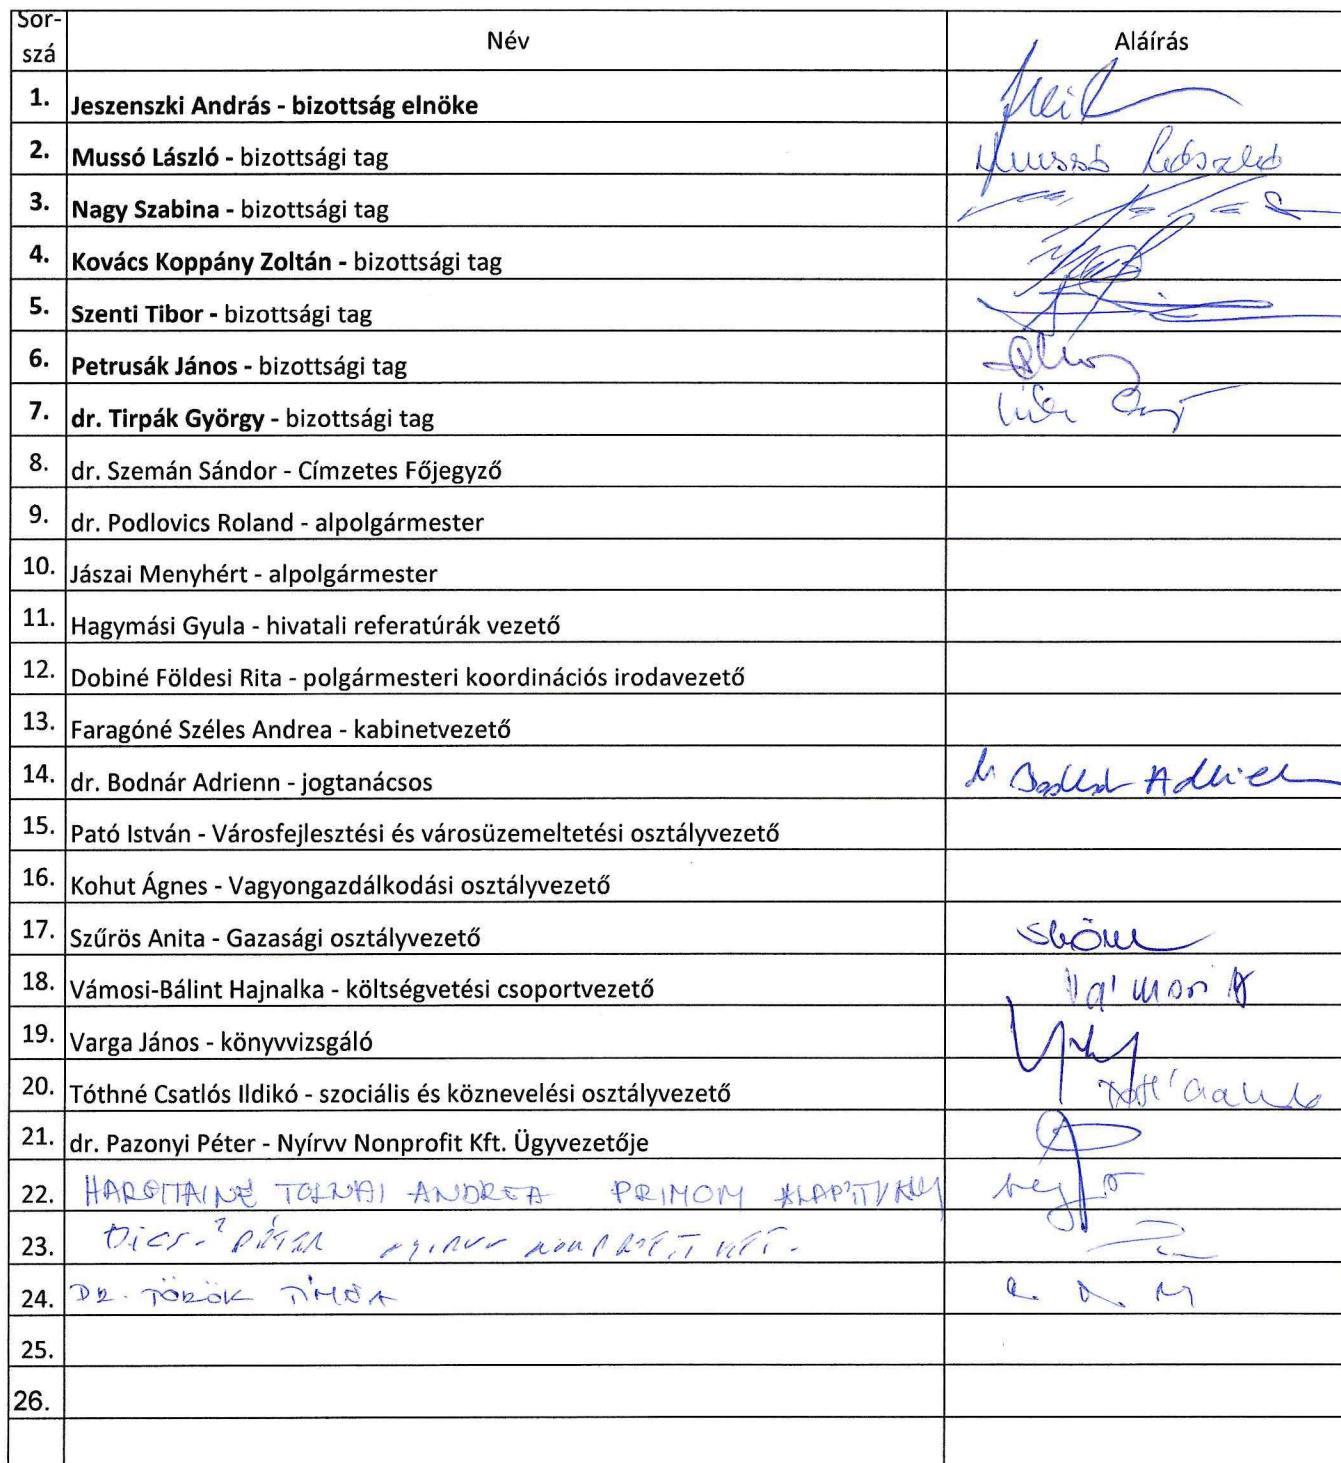 Sor-
szá
Név
Aláírás
1. Jeszenszki András - bizottság elnöke
2. Mussó László - bizottsági tag Mussó László
3. Nagy Szabina - bizottsági tag
4. Kovács Koppány Zoltán - bizottsági tag
5. Szenti Tibor - bizottsági tag
6. Petrusák János - bizottsági tag
7. dr. Tirpák György - bizottsági tag
8. dr. Szemán Sándor - Címzetes Főjegyző
9. dr. Podlovics Roland - alpolgármester
10. Jászai Menyhért - alpolgármester
11. Hagymási Gyula - hivatali referatúrák vezető
12. Dobiné Földesi Rita - polgármesteri koordinációs irodavezető
13. Faragóné Széles Andrea - kabinetvezető
14. dr. Bodnár Adrienn - jogtanácsos
15. Pató István - Városfejlesztési és városüzemeltetési osztályvezető
16. Kohut Ágnes - Vagyongazdálkodási osztályvezető
17. Szűrös Anita - Gazasági osztályvezető
18. Vámosi-Bálint Hajnalka - költségvetési csoportvezető
19. Varga János - könyvvizsgáló
20. Tóthné Csatlós Ildikó - szociális és köznevelési osztályvezető
21. dr. Pazonyi Péter - Nyírvv Nonprofit Kft. Ügyvezetője
22. HARGITAINÉ TOLNAI ANDREA PRIMOM ALAPÍTVÁNY
23. PÉTER NYIRVV NONPROFIT KFT.
24. DR. TÖRÖK TÍMEA
25.
26.